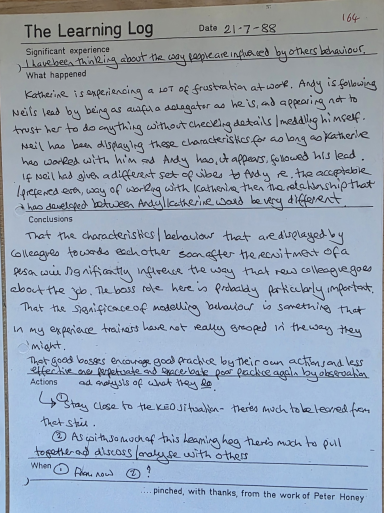 164
The Learning Log Date 21-7-88
Significant experience
I have been thinking about the way people are influenced by others behaviour.
What happened
Katherine is experiencing a LOT of frustration at work. Andy is following
Neils lead by being as awful a delegator as he is, and appearing not to
trust her to do anything without checking details / meddling himself.
Neil has been displaying these characteristics for as long as Katherine
has worked with him and Andy has, it appears, followed his lead.
If Neil had given a different set of vibes to Andy re. the acceptable
/ preferred even, way of working with Katherine then the relationship that
has developed between Andy / Katherine would be very different.
Conclusions
That the characteristics / behaviour that are displayed by
colleagues towards each other soon after the recruitment of a
person will significantly influence the way that new colleague goes
about the job. The boss role here is probably particularly important.
That the significance of modelling behaviour is something that
in my experience trainers have not really grasped in the way they
might.
That good bosses encourage good practice by their own actions and less
effective ones perpetuate and exacerbate poor practice again by observation
Actions and analysis of what they do.
① Stay close to the situation - theres much to be learned from
that still.
② As with so much of this Learning Log theres much to pull
together and discuss / analyse with others
When ① From now ② ?
....pinched, with thanks, from the work of Peter Honey